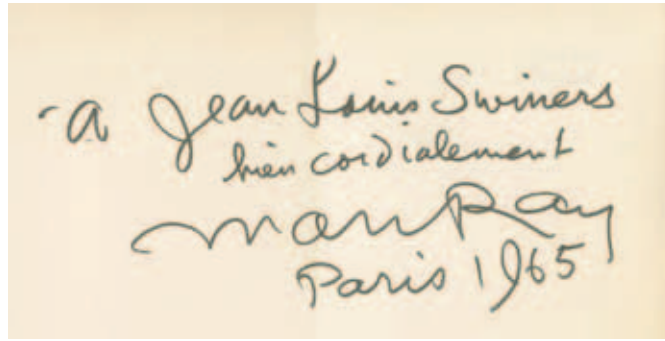 à Jean Louis Swiners
bien cordialement
Man Ray
Paris 1965